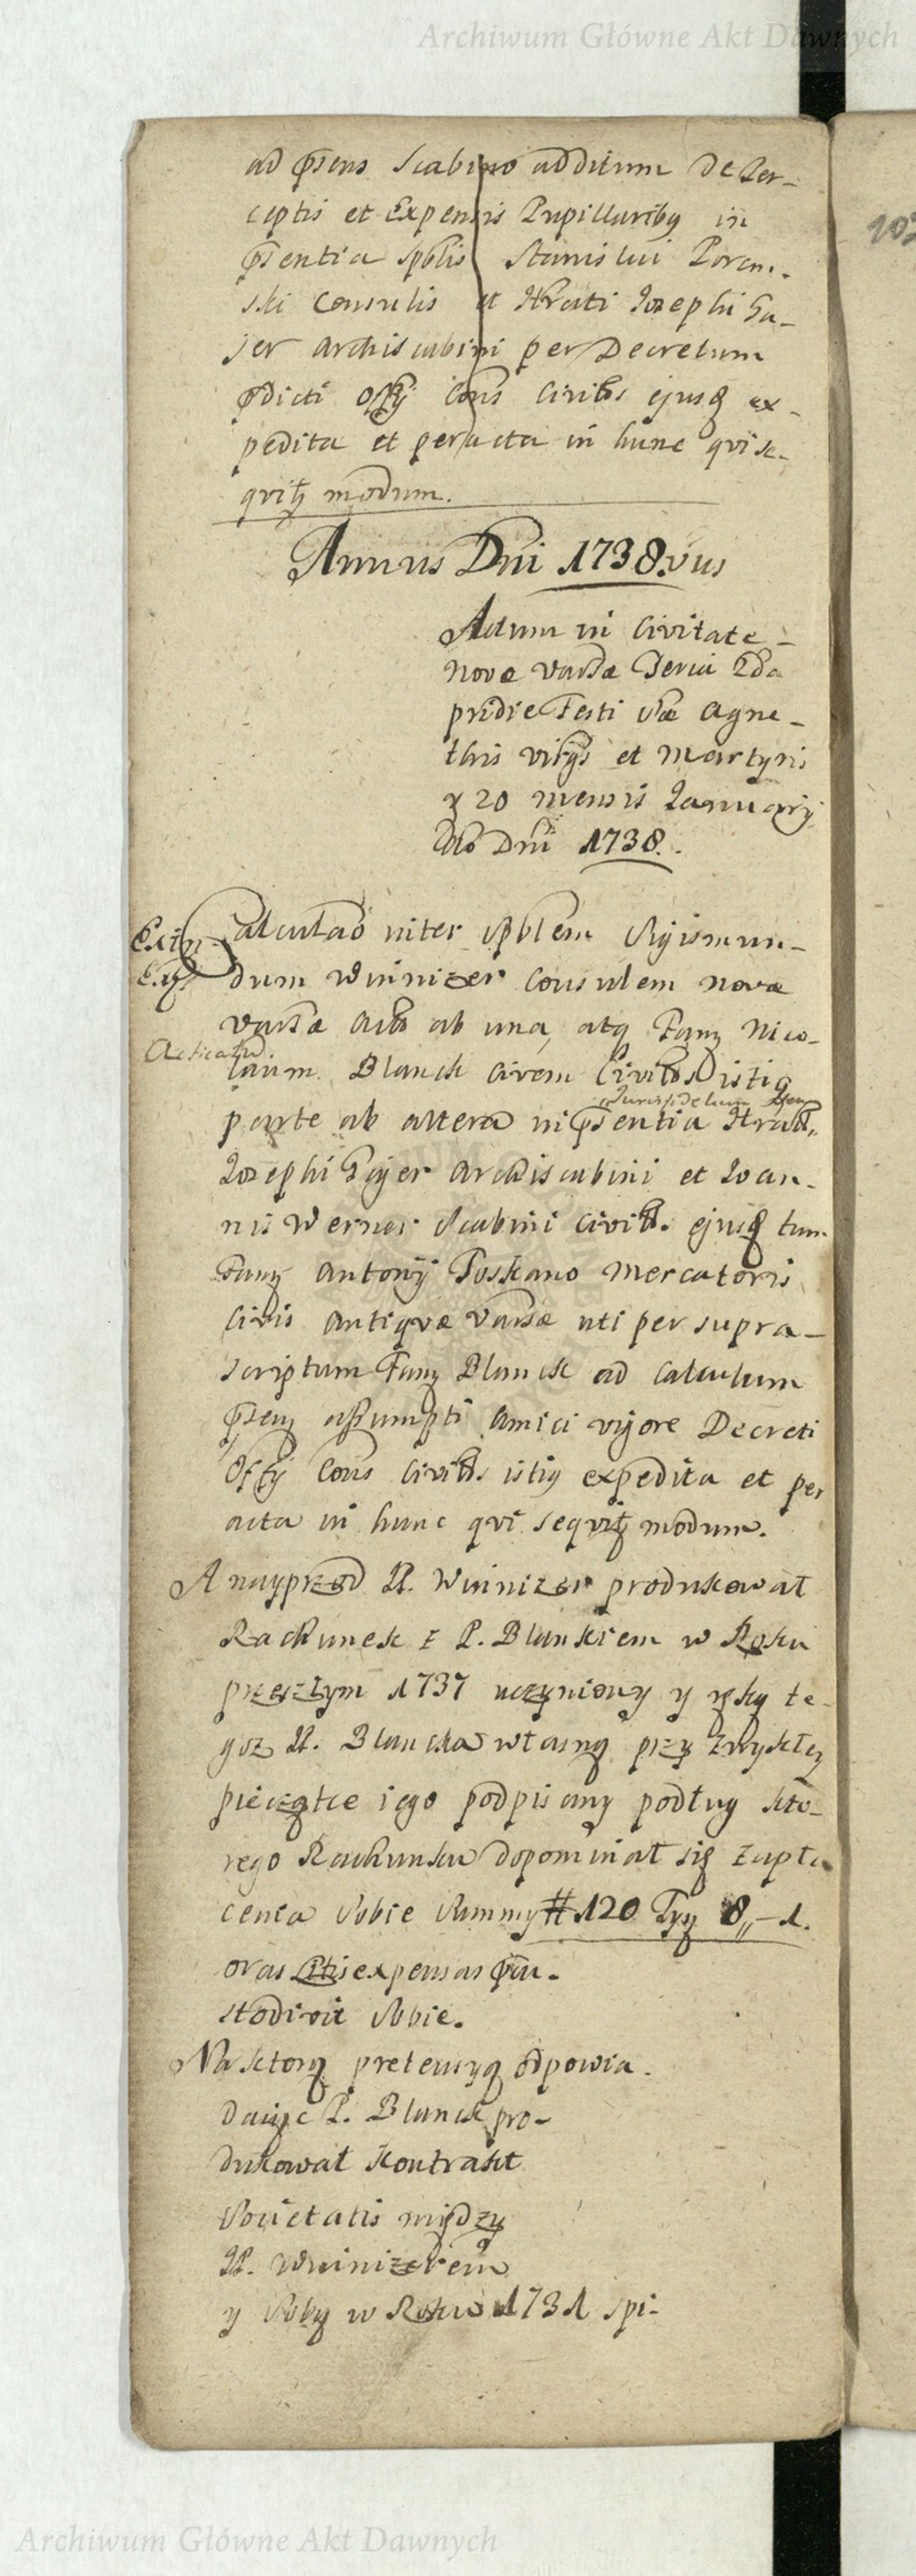 Archiwum Główne Akt Dawnych
ad pñsens Scabino additum de Per-
ceptis et Expensis Pupillariby in
pñsentia Spblis Stanislai Porem-
ski Consulis et Hrati Josephi Ga-
jer Archiscabini per Decretum
pdicti Offÿ Cons Civitis ejusq ex-
pedita et peracta in hunc qvi se-
qvitꝫ modum.
102
Annus Dñi 1738.vus
Actum in Civitate
Novæ Varsæ Feria 2da
pridie Festi Stæ Agne-
this virgis et Martyris
20 mensis Januarÿ
Ao Dñi 1738.
Extr
Calculao inter Spblem Sigismun-
Ext
dum Winnizer Consulem Novæ
Varsæ ab una, atq Famꝫ Nico-
Acticatu
laum Blanck Civem Civitis istiq
Jurisdelium
parte ab altera in pñsentia Hrati
Josephi Gajer Archiscabini et Joan-
nis Werner Scabini Civit. ejusq tum
Famꝫ Antonÿ Toskano Mercatoris
Civis Antiqvæ Varsæ uti per supra-
scriptum Famꝫ Blanck ad Calculum
pñsem assumpti Amici vigore Decreti
Offÿ Cons Civitis istiq expedita et per
acta in hunc qvi seqvitꝫ modum.
A nayprzod P. Winnizer produkował
Rachunek z P. Blankiem w Roku
przeszłym 1737 uczyniony y ręką te-
goz P. Blancka własną przy zwykłey
pieczątce iego podpisany podług kto-
rego Rachunku dopominał się zapła
cenia Sobie Summy # 120 Tyy 8,,-1.
oraz Litis expensas
stodivit Sobie.
Na ktorą pretensyą odpowia-
daiąc P. Blanck pro-
dukował Kontrakt
Societatis między
P. Winnizerem
y Sobą w Roku 1731 spi-
Archiwum Główne Akt Dawnych